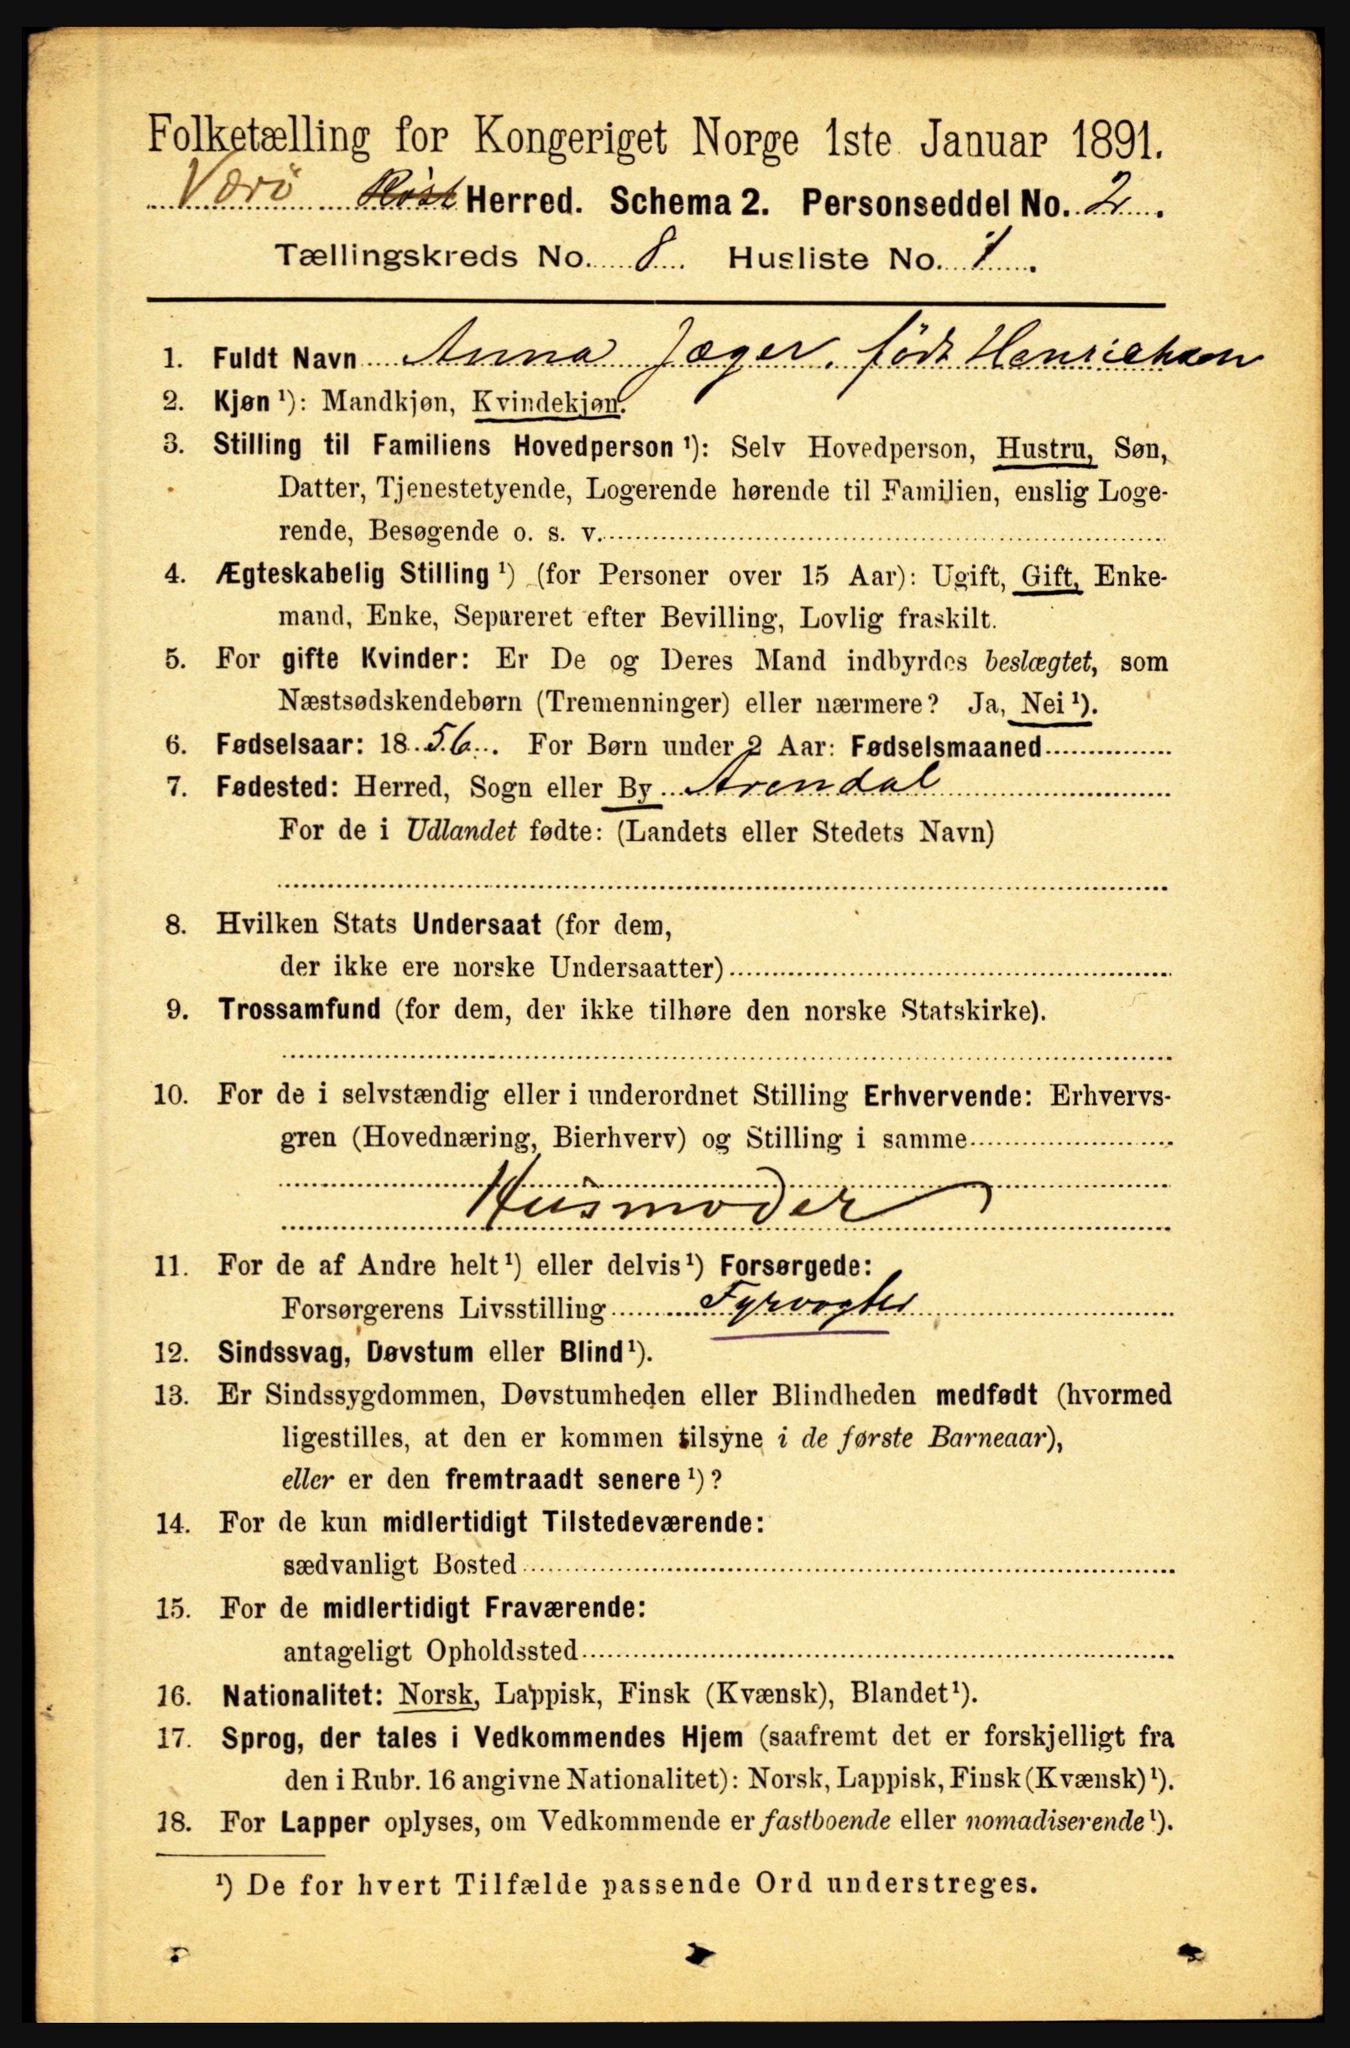 Folketælling for Kongeriget Norge 1ste Januar 1891.
Værö Røst Herred. Schema 2. Personseddel No. 2.
Tællingskreds No. 8 Husliste No. 1.
1. Fuldt Navn Anna Jæger, født Henrichsen
2. Kjøn ¹): Mandkjøn, Kvindekjøn.
3. Stilling til Familiens Hovedperson ¹): Selv Hovedperson, Hustru, Søn,
Datter, Tjenestetyende, Logerende hørende til Familien, enslig Loge-
rende, Besøgende o. s. v.
4. Ægteskabelig Stilling ¹) (for Personer over 15 Aar): Ugift, Gift, Enke-
mand, Enke, Separeret efter Bevilling, Lovlig fraskilt.
5. For gifte Kvinder: Er De og Deres Mand indbyrdes beslægtet, som
Næstsødskendebørn (Tremenninger) eller nærmere? Ja, Nei ¹).
6. Fødselsaar: 1856. For Børn under 2 Aar: Fødselsmaaned
7. Fødested: Herred, Sogn eller By Arendal
For de i Udlandet fødte: (Landets eller Stedets Navn)
8. Hvilken Stats Undersaat (for dem,
der ikke ere norske Undersaatter)
9. Trossamfund (for dem, der ikke tilhøre den norske Statskirke).
10. For de i selvstændig eller i underordnet Stilling Erhvervende: Erhvervs-
gren (Hovednæring, Bierhverv) og Stilling i samme
Husmoder
11. For de af Andre helt ¹) eller delvis ¹) Forsørgede:
Forsørgerens Livsstilling Fyrvogter
12. Sindssvag, Døvstum eller Blind ¹).
13. Er Sindssygdommen, Døvstumheden eller Blindheden medfødt (hvormed
ligestilles, at den er kommen tilsyne i de første Barneaar),
eller er den fremtraadt senere ¹)?
14. For de kun midlertidigt Tilstedeværende:
sædvanligt Bosted
15. For de midlertidigt Fraværende:
antageligt Opholdssted
16. Nationalitet: Norsk, Lappisk, Finsk (Kvænsk), Blandet ¹).
17. Sprog, der tales i Vedkommendes Hjem (saafremt det er forskjelligt fra
den i Rubr. 16 angivne Nationalitet): Norsk, Lappisk, Finsk (Kvænsk) ¹).
18. For Lapper oplyses, om Vedkommende er fastboende eller nomadiserende ¹).
¹) De for hvert Tilfælde passende Ord understreges.